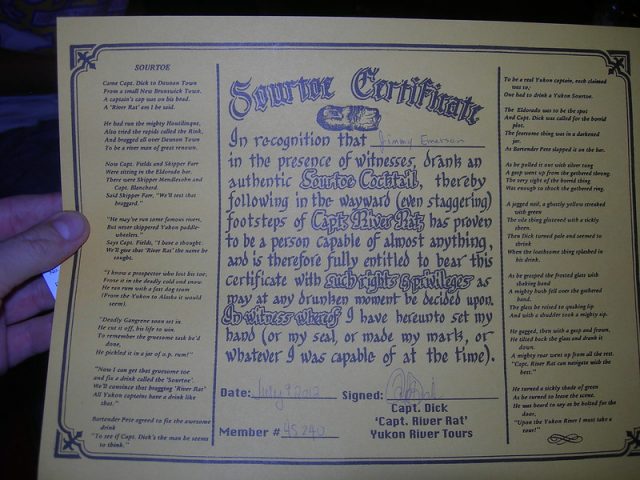 SOURTOE
Came Capt. Dick to Dawson Town
From a small New Brunswick Town.
A captain's cap was on his head.
A "River Rat" am I he said.
He had run the mighty Houtilinqua,
Also tried the rapids called the Rink,
And bragged all over Dawson Town
To be a river man of great renown.
Now Capt. Fields and Skipper Farr
Were sitting in the Eldorado bar.
There were Skipper Mendlesohn and
Capt. Blanchard.
Said Skipper Farr, "We'll test that
braggard."
"He may've run some famous rivers,
But never skippered Yukon paddle-
wheelers."
Says Capt. Fields, "I hose e thought.
We'll give that 'River Rat' the same he
sought.
"I know a prospector who lost his toe;
Froze it in the deadly cold and snow
He ran rum with a fast dog team
(From the Yukon to Alaska it would
seem).
"Deadly Gangrene soon set in
He cut it off, his life to win.
To remember the gruesome task he'd
done,
He pickled it in a jar of o.p. rum!"
"Now I can get that gruesome toe
and fix a drink called the 'Sourtoe'.
We'll convince that bragging 'River Rat'
All Yukon captains have a drink like
that."
Bartender Pete agreed to fix the awesome
drink
"To see if Capt. Dick's the man he seems
to think."
Sourtoe Certificate
In recognition that Jimmy Emerson
in the presence of witnesses, drank an
authentic Sourtoe Cocktail, thereby
following in the wayward (even staggering)
footsteps of Capt. River Rat, has proven
to be a person capable of almost anything,
and is therefore fully entitled to bear this
certificate with such rights & privileges as
may at any drunken moment be decided upon.
In witness whereof I have hereunto set my
hand (or my seal, or made my mark, or
whatever I was capable of at the time).
Date: July 9 2012 Signed:
Capt. Dick
'Capt. River Rat'
Member # 45240 Yukon River Tours
To be a real Yukon captain, each claimed
was to,
One had to drink a Yukon Sourtoe.
The Eldorado was to be the spot
And Capt. Dick was called for the horrid
plot.
The fearsome thing was in a darkened
jar.
As Bartender Pete slapped it on the bar.
As he pulled it out with silver tong
A gasp went up from the gathered throng.
The very sight of the horrid thing
Was enough to shock the gathered ring.
A jagged nail, a ghostly yellow streaked
with green
The vile thing glistened with a sickly
sheen.
Then Dick turned pale and seemed to
shrink
When the loathsome thing splashed in
his drink.
As he grasped the frosted glass with
shaking hand
A mighty hush fell over the gathered
band.
The glass he raised to quaking lip
And with a shudder took a mighty sip.
He gagged, then with a gasp and frown,
He tilted back the glass and drank it
down.
A mighty roar went up from all the rest.
"Capt. River Rat can navigate with the
best."
He turned a sickly shade of green
As he turned to leave the scene.
He was heard to say as he bolted for the
door,
"Upon the Yukon River I must take a
tour!"